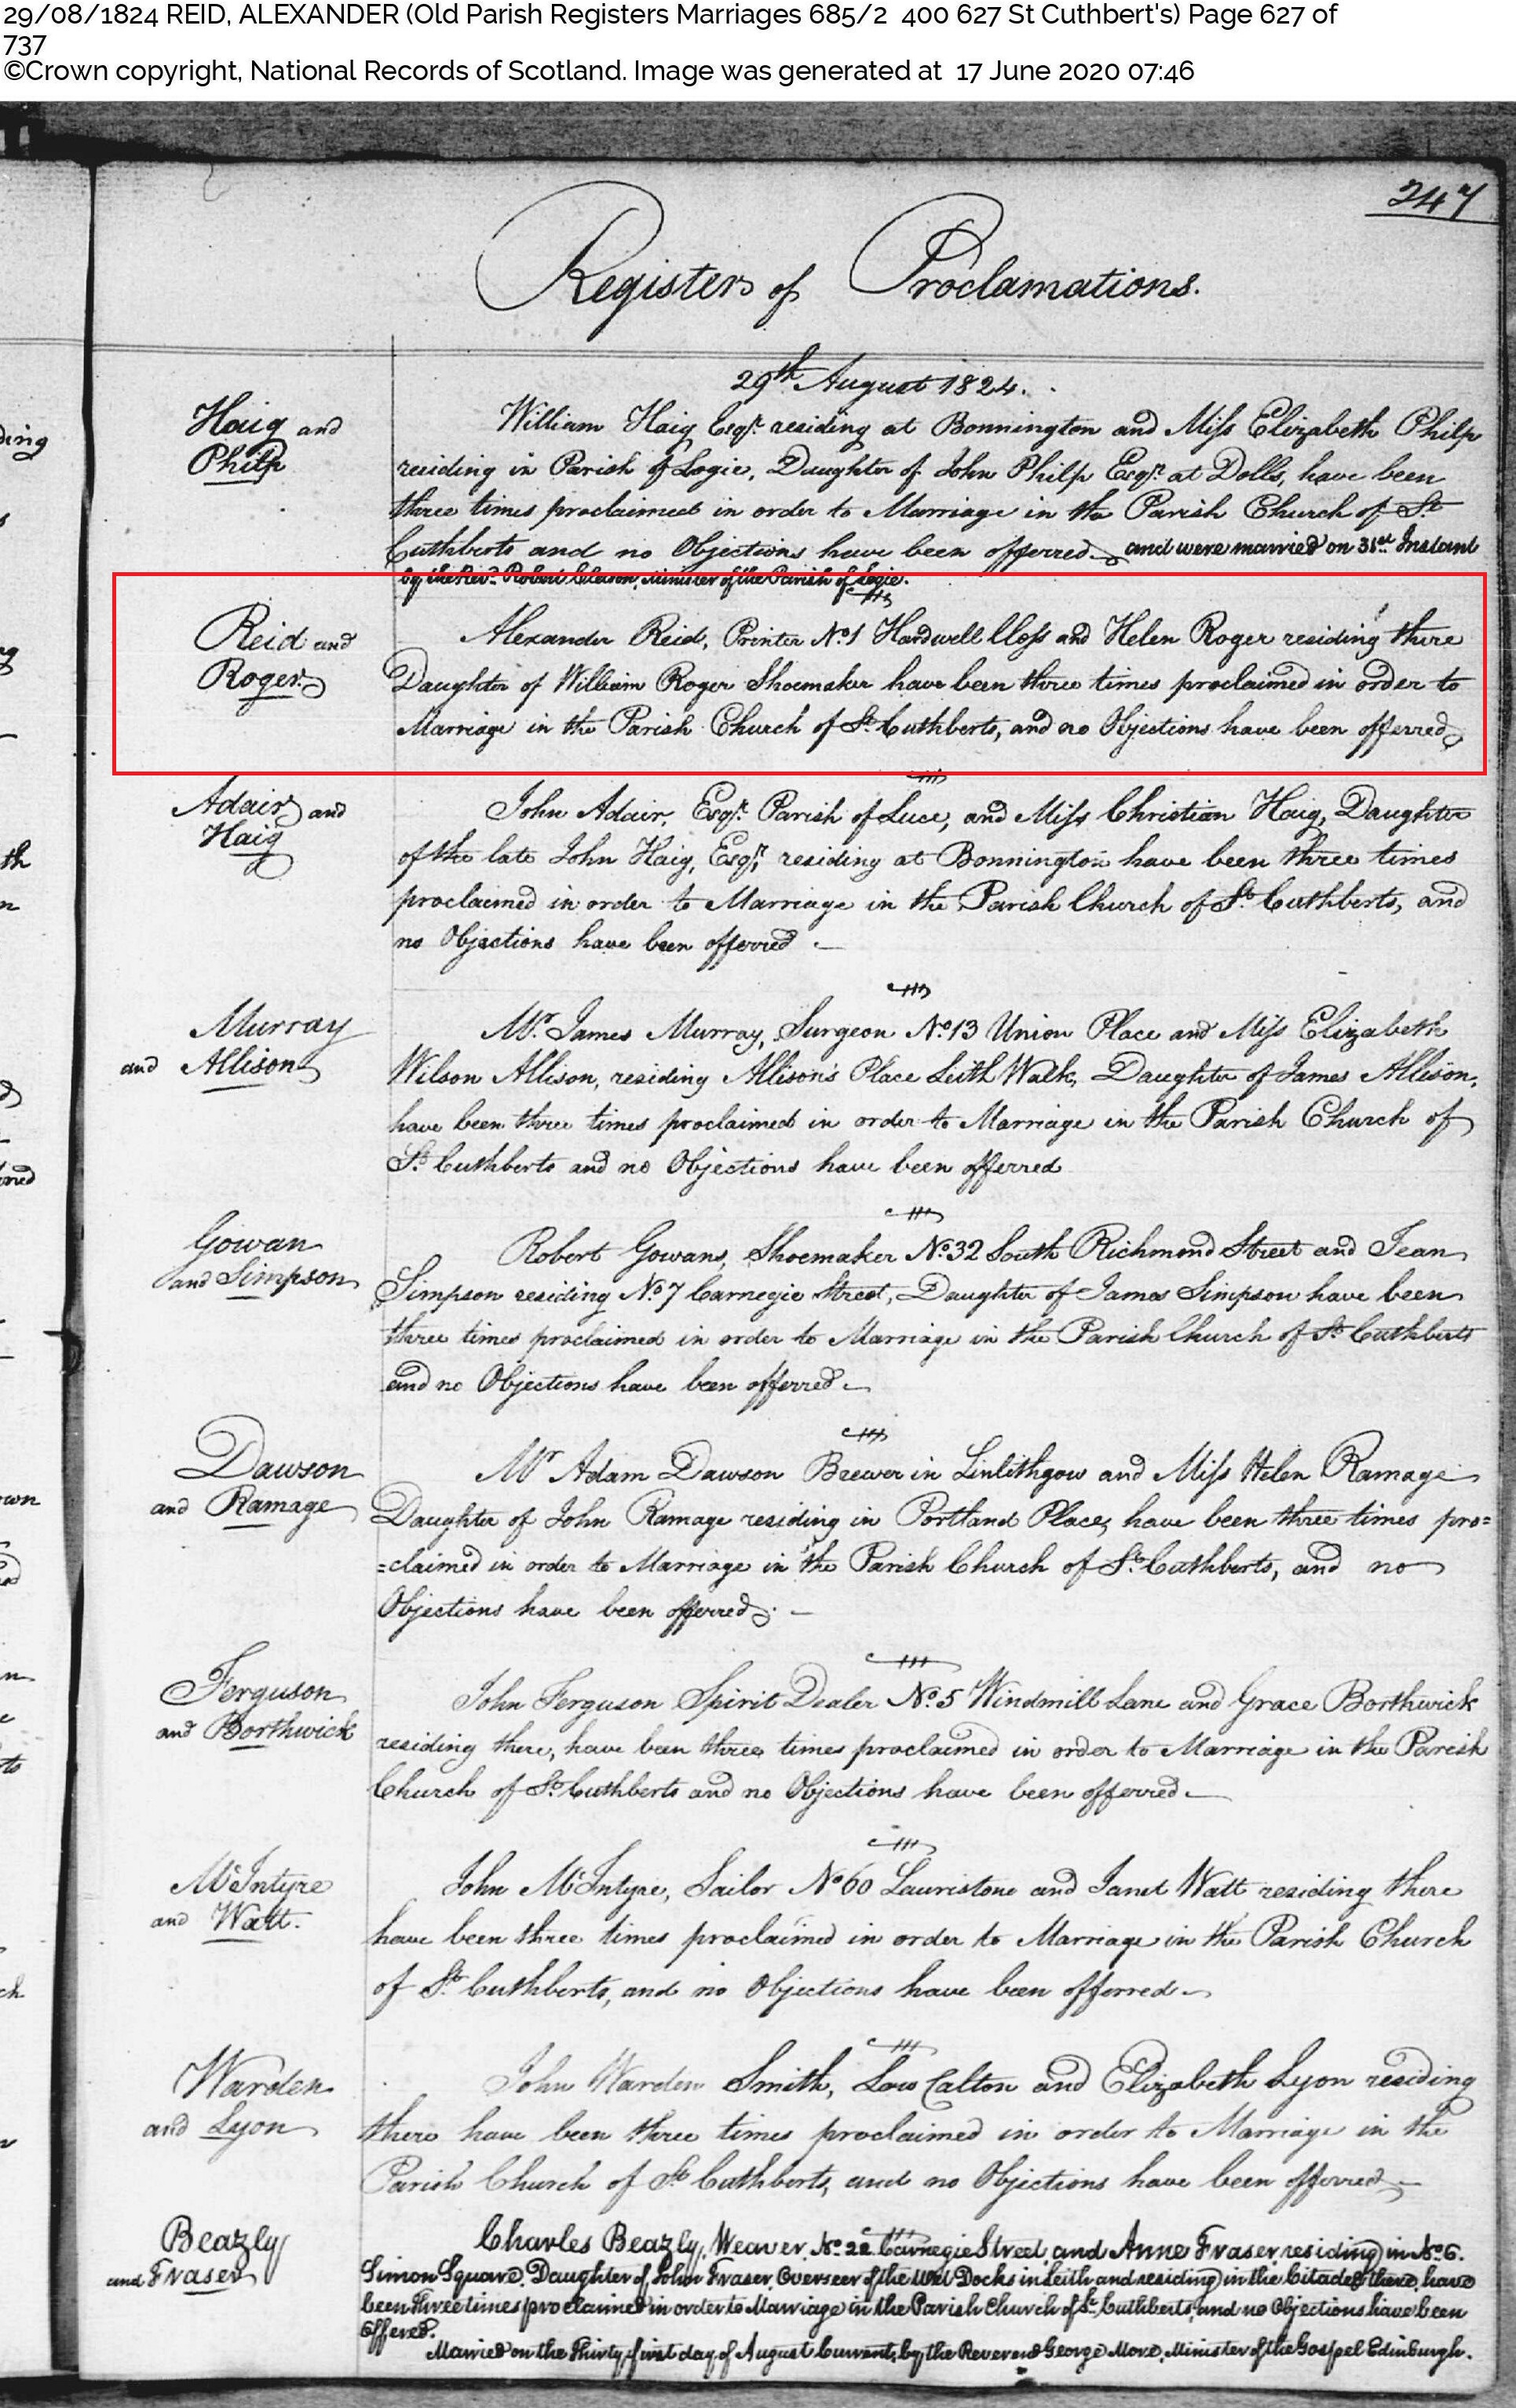 29/08/1824 REID, ALEXANDER (Old Parish Registers Marriages 685/2 400 627 St Cuthbert's) Page 627 of
737
©Crown copyright, National Records of Scotland. Image was generated at 17 June 2020 07:46
247
Register of Proclamations.
29th August 1824.
Haig and
Philp
William Haig Esqr. residing at Bonnington and Miss Elizabeth Philp
residing in Parish of Logie, Daughter of John Philp Esqr. at Dolls, have been
three times proclaimed in order to Marriage in the Parish Church of St.
Cuthberts and no Objections have been offerred and were married on 31st Instant
by the Revd. Robert Clason, Minister of the Parish of Logie.
Reid and
Roger
Alexander Reid, Printer No. 1 Hardwell Closs and Helen Roger residing there
Daughter of William Roger Shoemaker have been three times proclaimed in order to
Marriage in the Parish Church of St. Cuthberts, and no Objections have been offerred
Adair and
Haig
John Adair, Esqr. Parish of Luce, and Miss Christian Haig, Daughter
of the late John Haig, Esqr. residing at Bonnington have been three times
proclaimed in order to Marriage in the Parish Church of St. Cuthberts, and
no Objections have been offerred
Murray
and Allison
Mr. James Murray, Surgeon No. 13 Union Place and Miss Elizabeth
Wilson Allison, residing Allison's Place Leith Walk, Daughter of James Allison,
have been three times proclaimed in order to Marriage in the Parish Church of
St. Cuthberts and no Objections have been offerred
Gowan
and Simpson
Robert Gowans, Shoemaker No. 32 South Richmond Street and Jean
Simpson residing No. 7 Carnegie Street, Daughter of James Simpson have been
three times proclaimed in order to Marriage in the Parish Church of St. Cuthberts
and no Objections have been offerred
Dawson
and Ramage
Mr Adam Dawson Brewer in Linlithgow and Miss Helen Ramage
Daughter of John Ramage residing in Portland Place, have been three times pro=
=claimed in order to Marriage in the Parish Church of St. Cuthberts, and no
Objections have been offerred
Ferguson
and Borthwick
John Ferguson Spirit Dealer No. 5 Windmill Lane and Grace Borthwick
residing there, have been three times proclaimed in order to Marriage in the Parish
Church of St. Cuthberts and no Objections have been offerred
McIntyre
and Watt.
John McIntyre, Sailor No 60 Lauristone and Janet Watt residing there
have been three times proclaimed in order to Marriage in the Parish Church
of St. Cuthberts, and no Objections have been offerred
Warden
and Lyon
John Warden Smith, Low Calton and Elizabeth Lyon residing
there have been three times proclaimed in order to Marriage in the
Parish Church of St. Cuthberts, and no Objections have been offerred
Beazly
and Fraser
Charles Beazly, Weaver, No. 22 Carnegie Street, and Anne Fraser, residing in No. 6.
Simon Square, Daughter of John Fraser, Overseer of the Wet Docks in Leith and residing in the Citadel there, have
been three times proclaimed in order to Marriage in the Parish Church of St. Cuthberts, and no Objections have been
offered.
Married on the Thirty first day of August Current, by the Reverend George More, Minister of the Gospel Edinburgh.